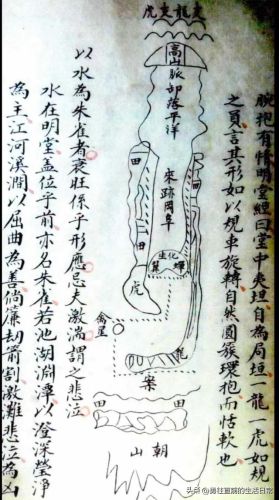 腕抱有情明堂經曰堂中夾垣自為局垣一龍一虎如規
之員言其形如以規車旋轉自然圓簇環抱而怙軟也
更龍更虎
高山脈部落平洋
來跡岡阜
田
田
日
生化
虎
禽星
龍
案
田
田
朝山
以水為朱雀者衰旺係乎形應忌夫激湍謂之悲泣
水在明堂蓋位乎前亦名朱雀若池湖淵潭以澄深瑩淨
為主江河溪澗以屈曲為善倘廉劫箭割激難悲泣為凶
头条 @勇往直前的生活日常